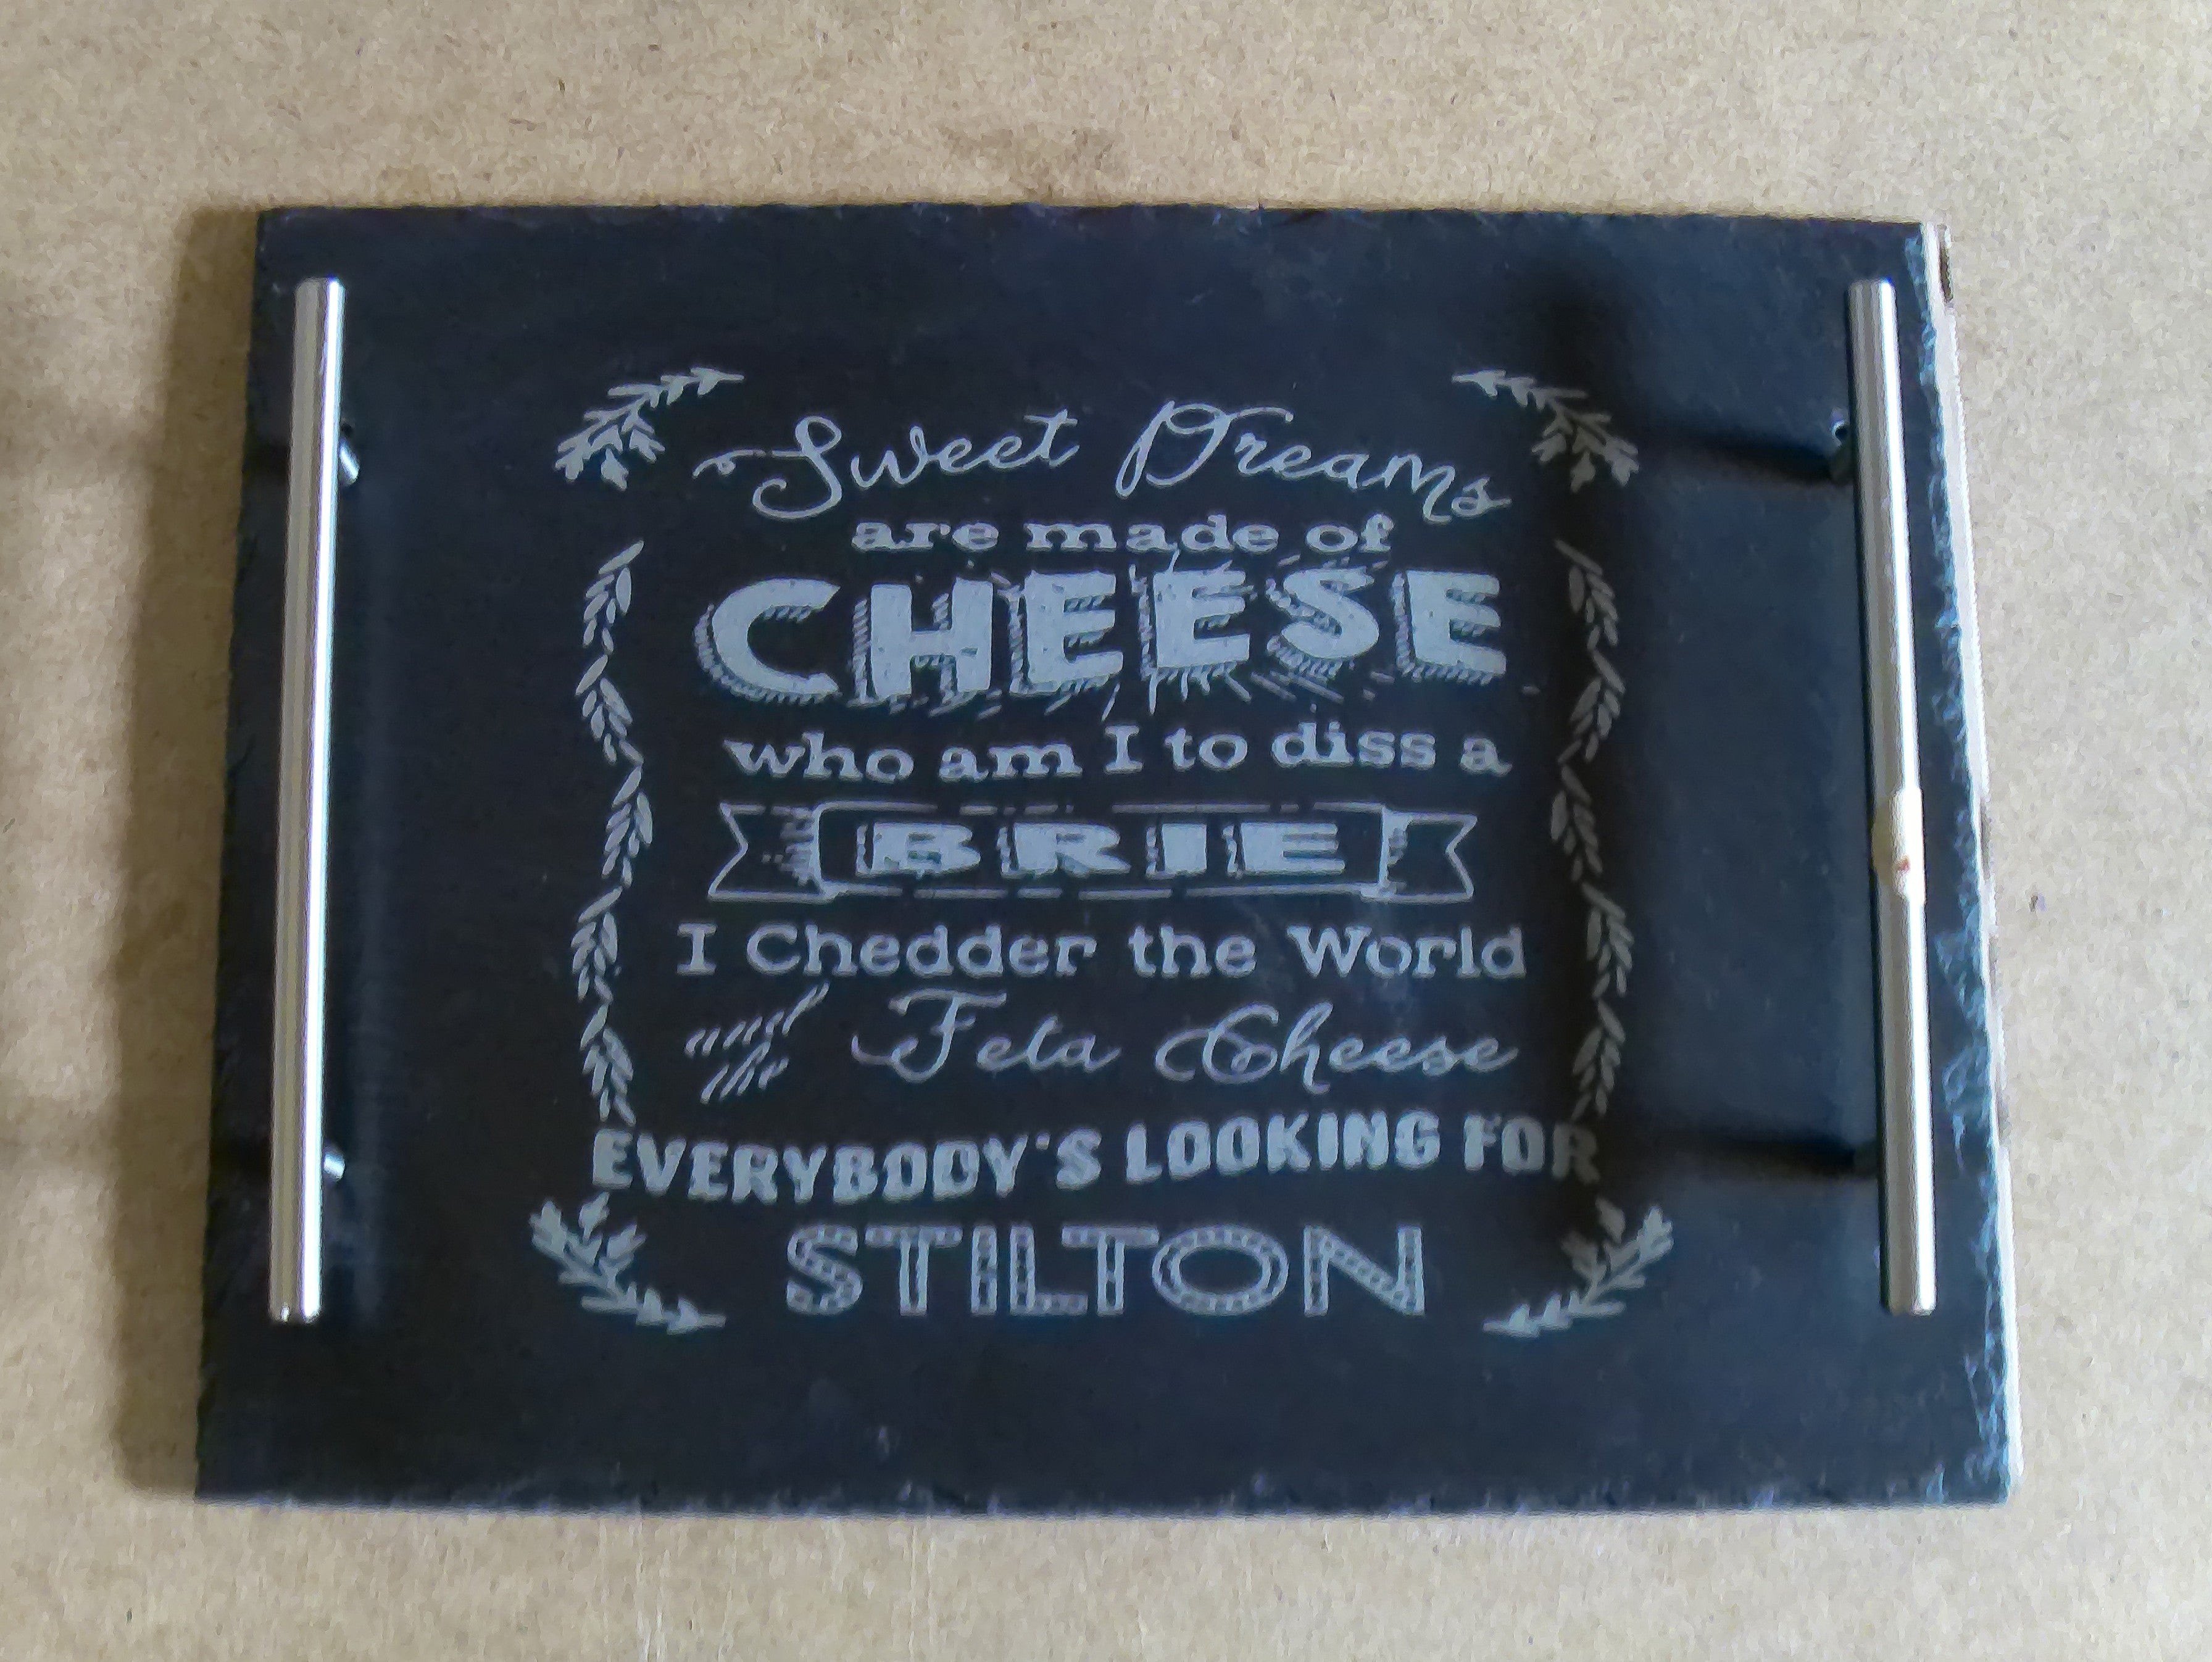 Sweet Dreams
are made of
CHEESE
who am I to diss a
BRIE
I Chedder the World
Feta Cheese
EVERYBODY'S LOOKING FOR
STILTON